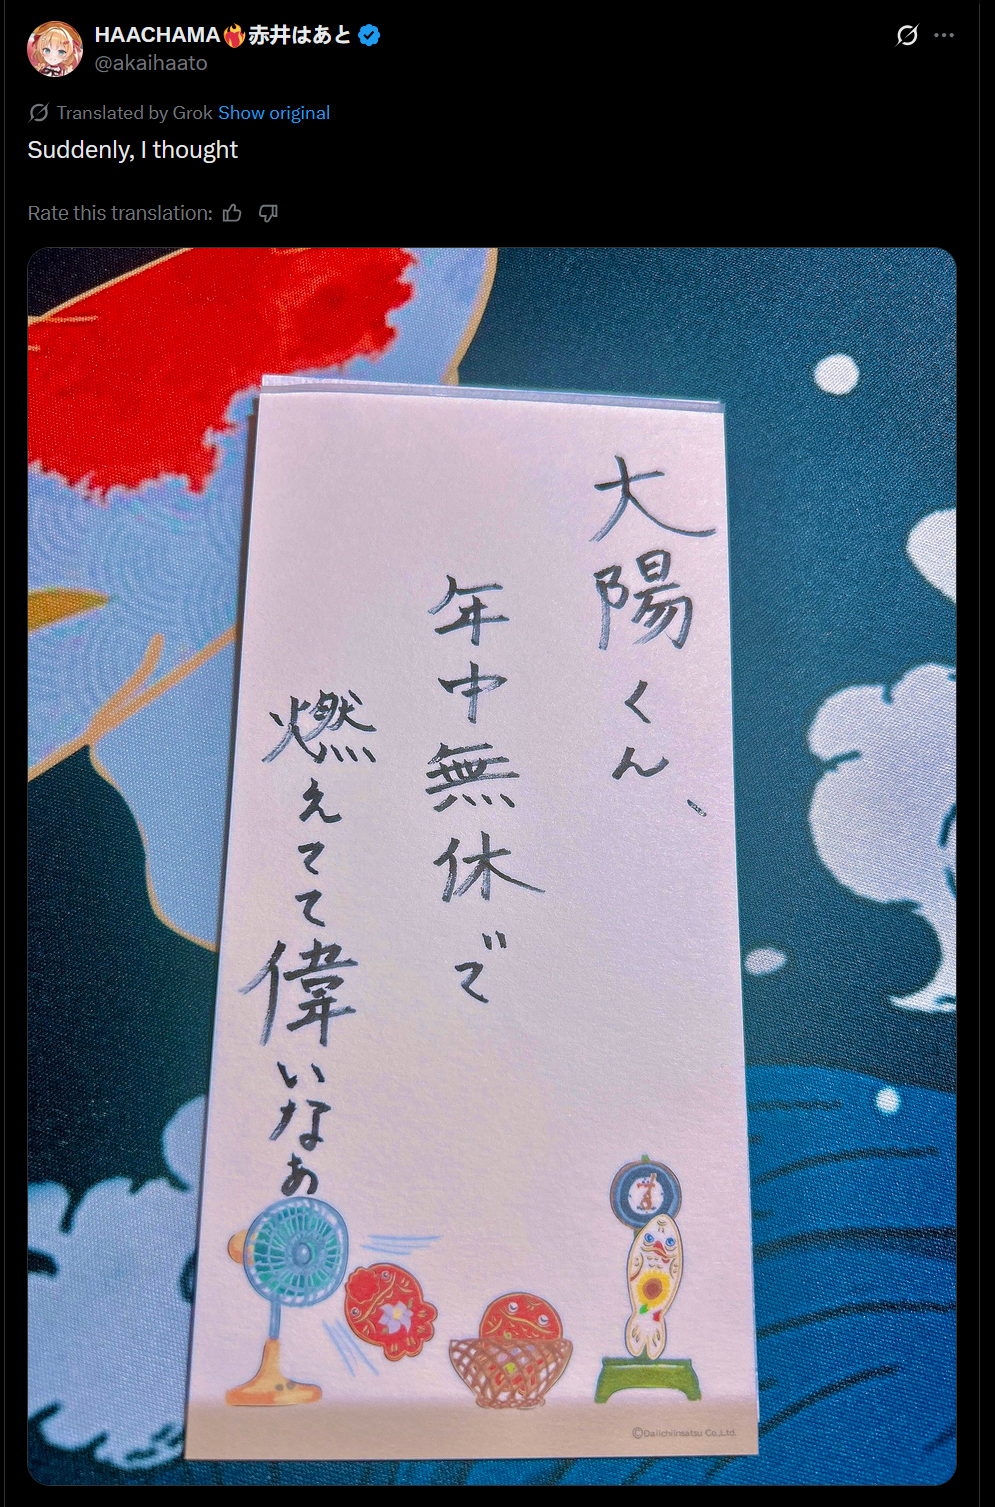 HAACHAMA❤️‍🔥赤井はあと
@akaihaato
Translated by Grok Show original
Suddenly, I thought
Rate this translation:
大陽くん、
年中無休で
燃えてて偉いなぁ
©DaiichiInsatsu Co.,Ltd.